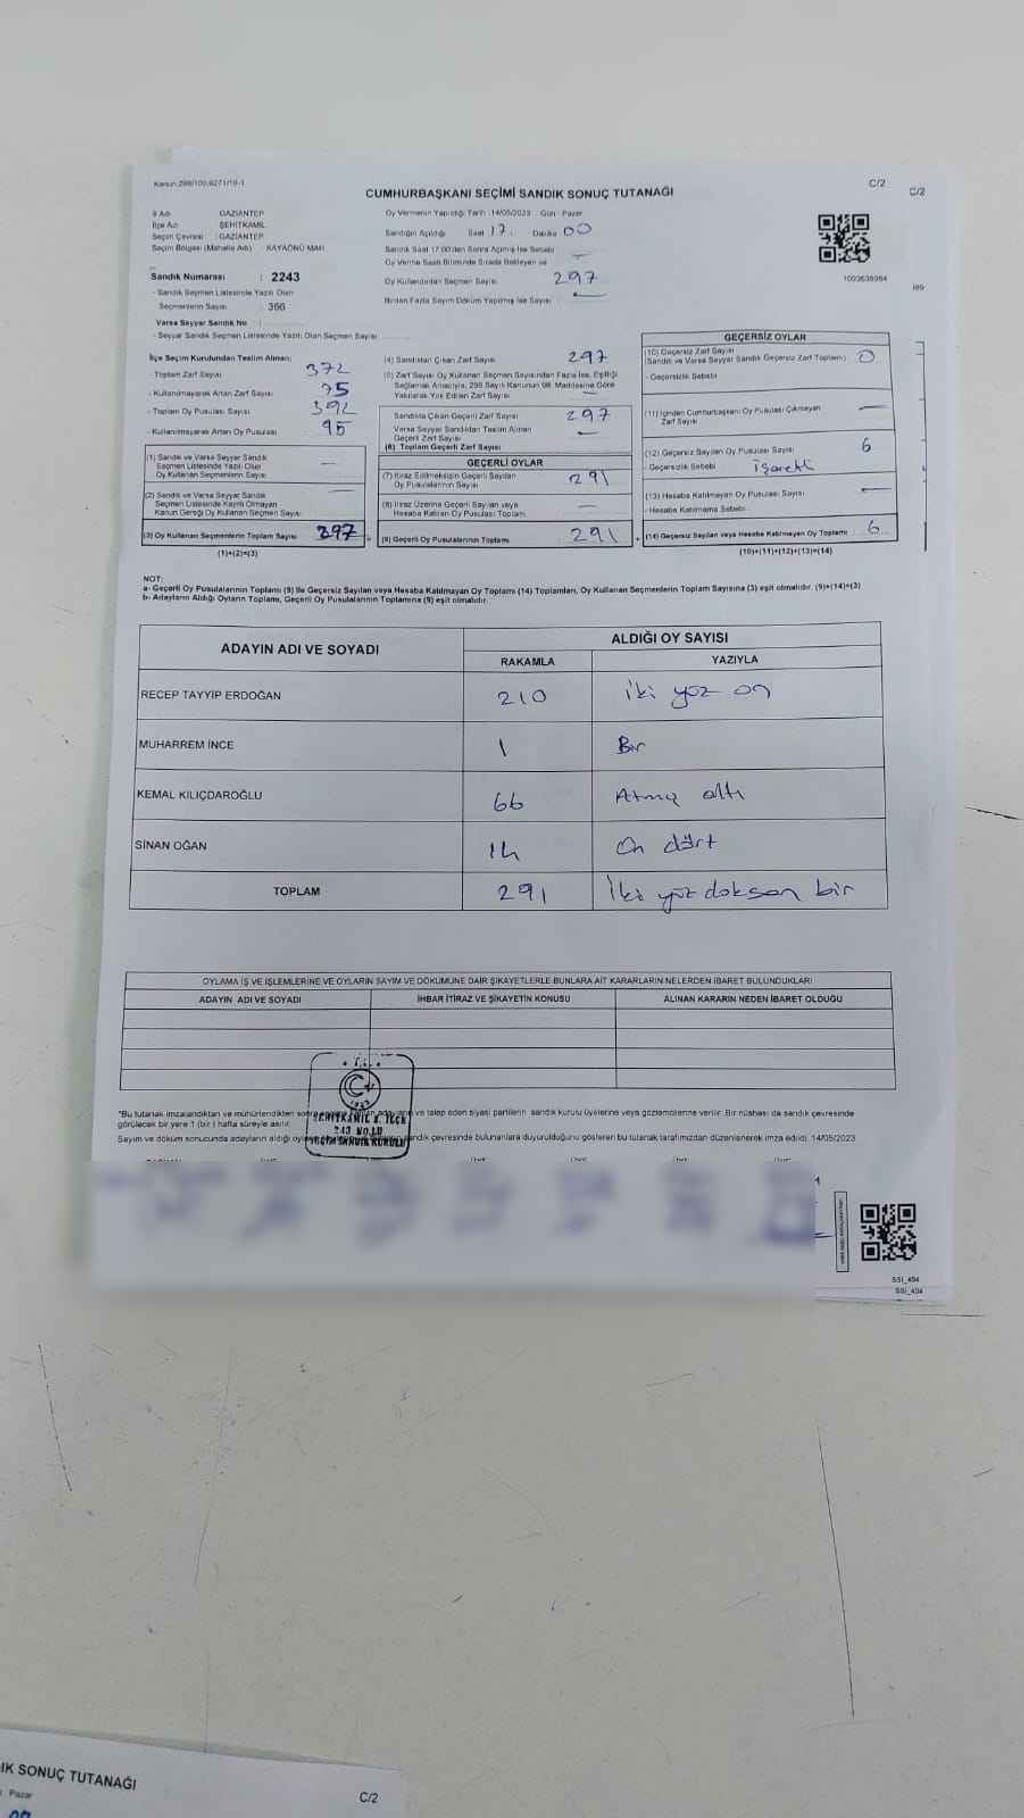 Kanun:298/100,6271/19-1
C/2
C/2
CUMHURBAŞKANI SEÇİMİ SANDIK SONUÇ TUTANAĞI
İl Adı : GAZİANTEP
İlçe Adı : ŞEHİTKAMİL
Seçim Çevresi : GAZİANTEP
Seçim Bölgesi (Mahalle Adı) : KAYAÖNÜ MAH.
Sandık Numarası : 2243
- Sandık Seçmen Listesinde Yazılı Olan
Seçmenlerin Sayısı : 366
Varsa Seyyar Sandık No :
- Seyyar Sandık Seçmen Listesinde Yazılı Olan Seçmen Sayısı
Oy Vermenin Yapıldığı Tarih : 14/05/2023 Gün : Pazar
Sandığın Açıldığı Saat 17 : Dakika 00
Sandık Saat 17.00'den Sonra Açılmış İse Sebebi
Oy Verme Saati Bitiminde Sırada Bekleyen ve
Oy Kullandırılan Seçmen Sayısı 297
Birden Fazla Sayım Döküm Yapılmış İse Sayısı
1003638984
İlçe Seçim Kurulundan Teslim Alınan;
- Toplam Zarf Sayısı 372
- Kullanılmayarak Artan Zarf Sayısı 75
- Toplam Oy Pusulası Sayısı 392
- Kullanılmayarak Artan Oy Pusulası 95
(1) Sandık ve Varsa Seyyar Sandık
Seçmen Listesinde Yazılı Olan
Oy Kullanan Seçmenlerin Sayısı —
(2) Sandık ve Varsa Seyyar Sandık
Seçmen Listesinde Kayıtlı Olmayan
Kanun Gereği Oy Kullanan Seçmen Sayısı —
(3) Oy Kullanan Seçmenlerin Toplam Sayısı 397
(1)+(2)=(3)
(4) Sandıktan Çıkan Zarf Sayısı 297
(5) Zarf Sayısı Oy Kullanan Seçmen Sayısından Fazla İse, Eşitliği
Sağlamak Amacıyla, 298 Sayılı Kanunun 98. Maddesine Göre
Yakılarak Yok Edilen Zarf Sayısı —
Sandıkta Çıkan Geçerli Zarf Sayısı 297
Varsa Seyyar Sandıktan Teslim Alınan
Geçerli Zarf Sayısı —
(6) Toplam Geçerli Zarf Sayısı
GEÇERLİ OYLAR
(7) İtiraz Edilmeksizin Geçerli Sayılan
Oy Pusulalarının Sayısı 291
(8) İtiraz Üzerine Geçerli Sayılan veya
Hesaba Katılan Oy Pusulası Toplamı —
(9) Geçerli Oy Pusulalarının Toplamı 291
GEÇERSİZ OYLAR
(10) Geçersiz Zarf Sayısı
(Sandık ve Varsa Seyyar Sandık Geçersiz Zarf Toplamı) 0
- Geçersizlik Sebebi
(11) İçinden Cumhurbaşkanı Oy Pusulası Çıkmayan
Zarf Sayısı —
(12) Geçersiz Sayılan Oy Pusulası Sayısı 6
- Geçersizlik Sebebi işaretli
(13) Hesaba Katılmayan Oy Pusulası Sayısı —
- Hesaba Katılmama Sebebi
(14) Geçersiz Sayılan veya Hesaba Katılmayan Oy Toplamı 6
(10)+(11)+(12)+(13)=(14)
NOT:
a- Geçerli Oy Pusulalarının Toplamı (9) ile Geçersiz Sayılan veya Hesaba Katılmayan Oy Toplamı (14) Toplamları, Oy Kullanan Seçmenlerin Toplam Sayısına (3) eşit olmalıdır. (9)+(14)=(3)
b- Adayların Aldığı Oyların Toplamı, Geçerli Oy Pusulalarının Toplamına (9) eşit olmalıdır.
ADAYIN ADI VE SOYADI
ALDIĞI OY SAYISI
RAKAMLA YAZIYLA
RECEP TAYYİP ERDOĞAN 210 iki yüz on
MUHARREM İNCE 1 Bir
KEMAL KILIÇDAROĞLU 66 Atmış altı
SİNAN OĞAN 14 On dört
TOPLAM 291 İki yüz doksan bir
OYLAMA İŞ VE İŞLEMLERİNE VE OYLARIN SAYIM VE DÖKÜMÜNE DAİR ŞİKAYETLERLE BUNLARA AİT KARARLARIN NELERDEN İBARET BULUNDUKLARI
ADAYIN ADI VE SOYADI İHBAR İTİRAZ VE ŞİKAYETİN KONUSU ALINAN KARARIN NEDEN İBARET OLDUĞU
*Bu tutanak imzalandıktan ve mühürlendikten ve talep eden siyasi partilerin sandık kurulu üyelerine veya gözlemcilerine verilir. Bir nüshası da sandık çevresinde
görülecek bir yere 1 (bir) hafta süreyle asılır.
Sayım ve döküm sonucunda adayların aldığı sandık çevresinde bulunanlara duyurulduğunu gösteren bu tutanak tarafımızdan düzenlenerek imza edildi. 14/05/2023
ŞEHİTKAMİL 2. İLÇE
SSI_494
SSI_494
IK SONUÇ TUTANAĞI
Pazar
C/2